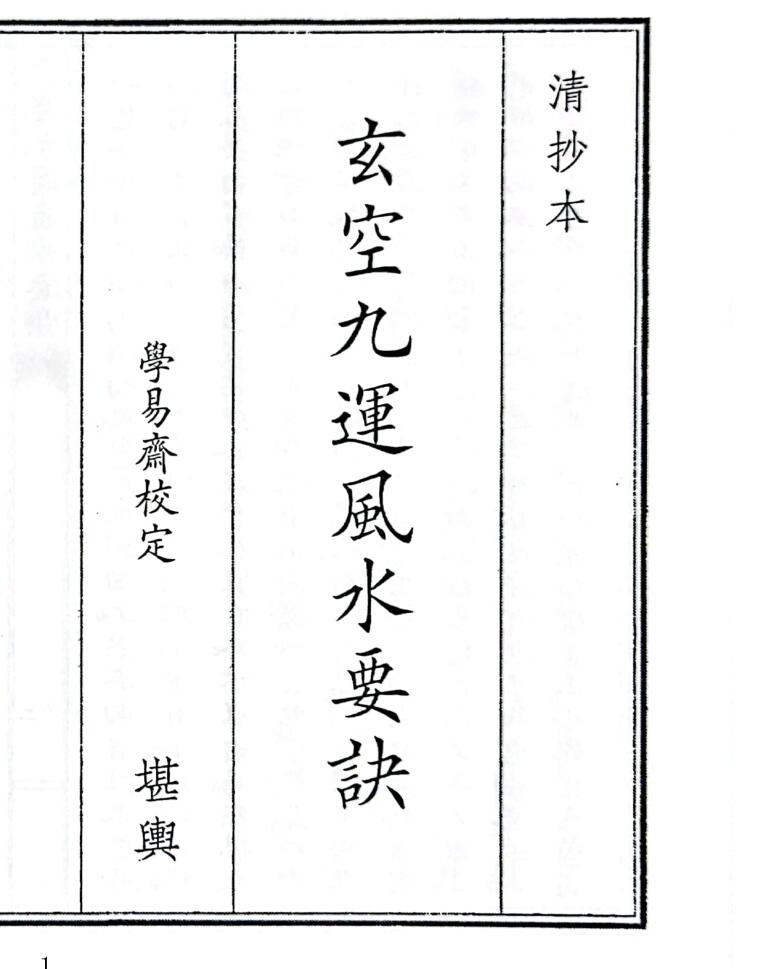 清抄本
玄空九運風水要訣
學易齋校定
堪輿
1